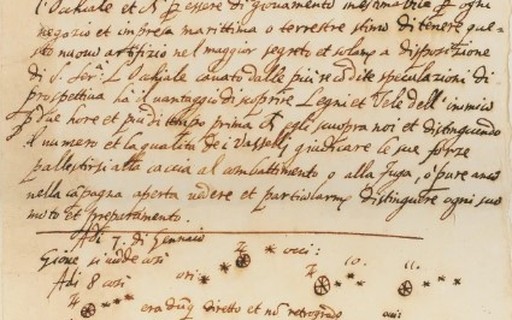 l'Occhiale et N. p. essere di giovamento inestimabile p. ogni
negozio et impresa marittima o terrestre stimo di tenere que-
sto nuovo artifizio nel maggior segreto et solam. a disposizione
di S. Ser. L'Occhiale cavato dalle più recondite speculazioni di
prospettiva ha il vantaggio di scoprire Legni et Vele dell'inimico
p. due hore et più di tempo prima ch' egli scuopra noi et distinguendo
il numero et la qualità dei Vasselli giudicare le sue forze
pallestirsi alla caccia al combattimento o alla fuga, o pure anco
nella capagna aperta vedere et particolarm. distinguere ogni suo
moto et preparamento.
Adi 7. di Gennaio
Giove si vedde così
occi:
Adi 8 così
ori
10. 11.
era dūq. diretto et nō retrogrado